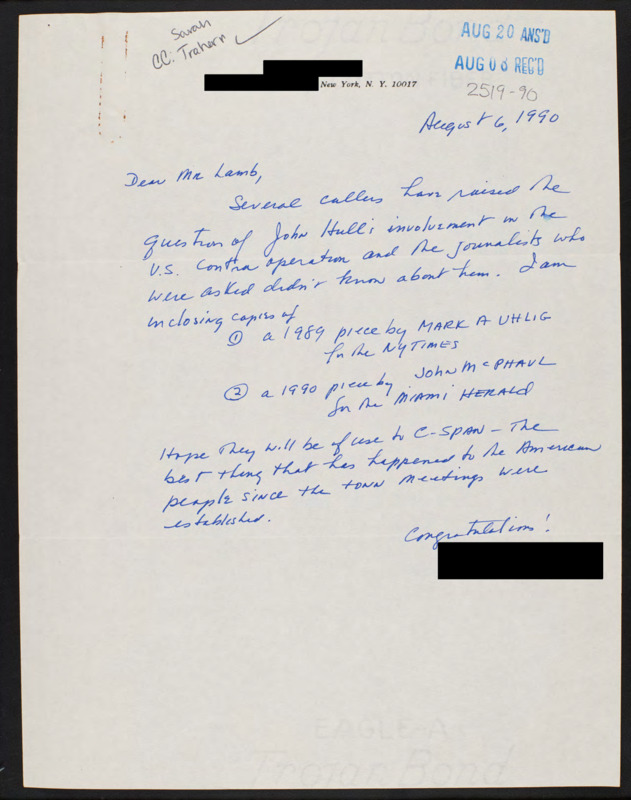 Sarah
CC: Trahern
AUG 20 ANS'D
AUG 08 REC'D
2519-90
New York, N. Y. 10017
August 6, 1990
Dear Mr Lamb,
Several callers have raised the
question of John Hull's involvement in the
U.S. Contra operation and the journalists who
were asked didn't know about him. I am
inclosing copies of
① a 1989 piece by MARK A UHLIG
for the NYTIMES
② a 1990 piece by JOHN McPHAUL
for the MIAMI HERALD
Hope they will be of use to C-SPAN - The
best thing that has happened to the American
people since the town meetings were
established.
Congratulations!
EAGLE-A
Trojan Bond